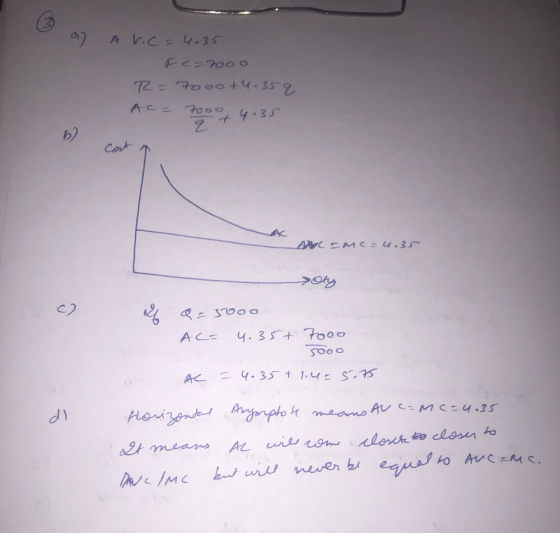 ③
a) A V.C = 4.35
FC = 7000
TC = 7000 + 4.35q
AC = 7000/q + 4.35
b)
Cost
AC
AVC = MC = 4.35
Qty
c) If Q = 5000
AC = 4.35 + 7000/5000
AC = 4.35 + 1.4 = 5.75
d) Horizontal Asymptote means AVC = MC = 4.35
It means AC will come closer to closer to
AVC/MC but will never be equal to AVC = MC.